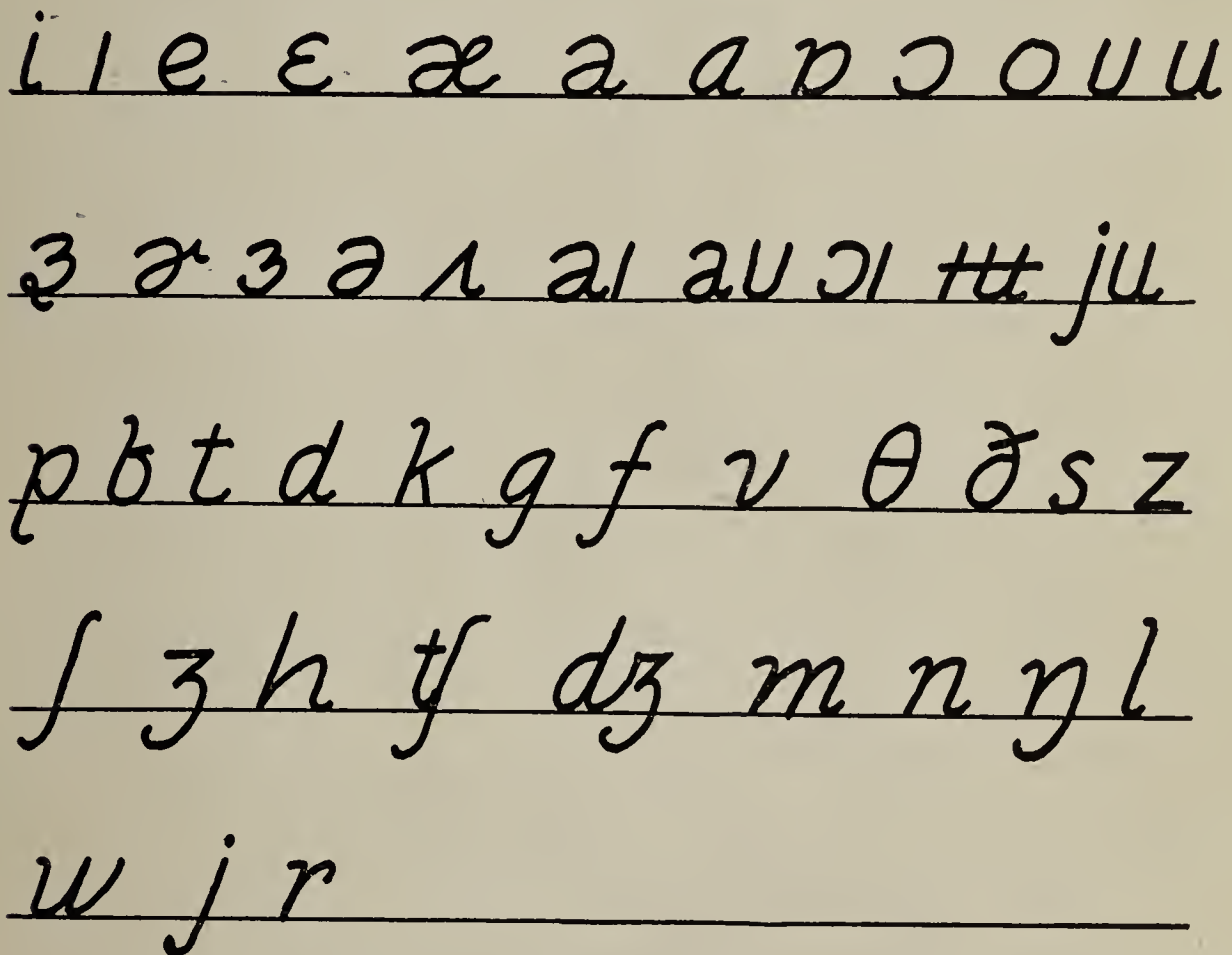 i ɪ e ɛ æ a ɑ ɒ ɔ o ʊ u
ɝ ɚ ɜ ə ʌ aɪ aʊ ɔɪ ɪʉ ju
p b t d k g f v θ ð s z
ʃ ʒ h tʃ dʒ m n ŋ l
w j r